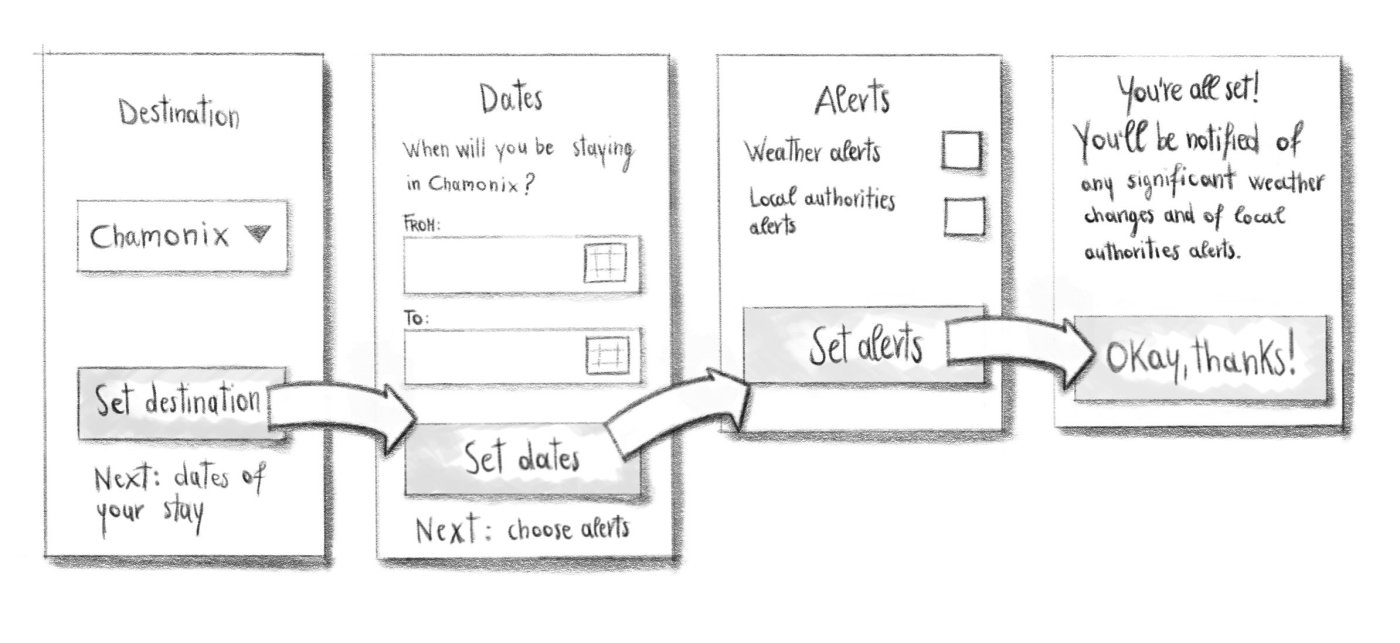 Destination
Chamonix
Set destination
Next: dates of
your stay
Dates
When will you be staying
in Chamonix?
FROM:
To:
Set dates
Next: choose alerts
Alerts
Weather alerts
Local authorities
alerts
Set alerts
You're all set!
You'll be notified of
any significant weather
changes and of local
authorities alerts.
Okay, thanks!